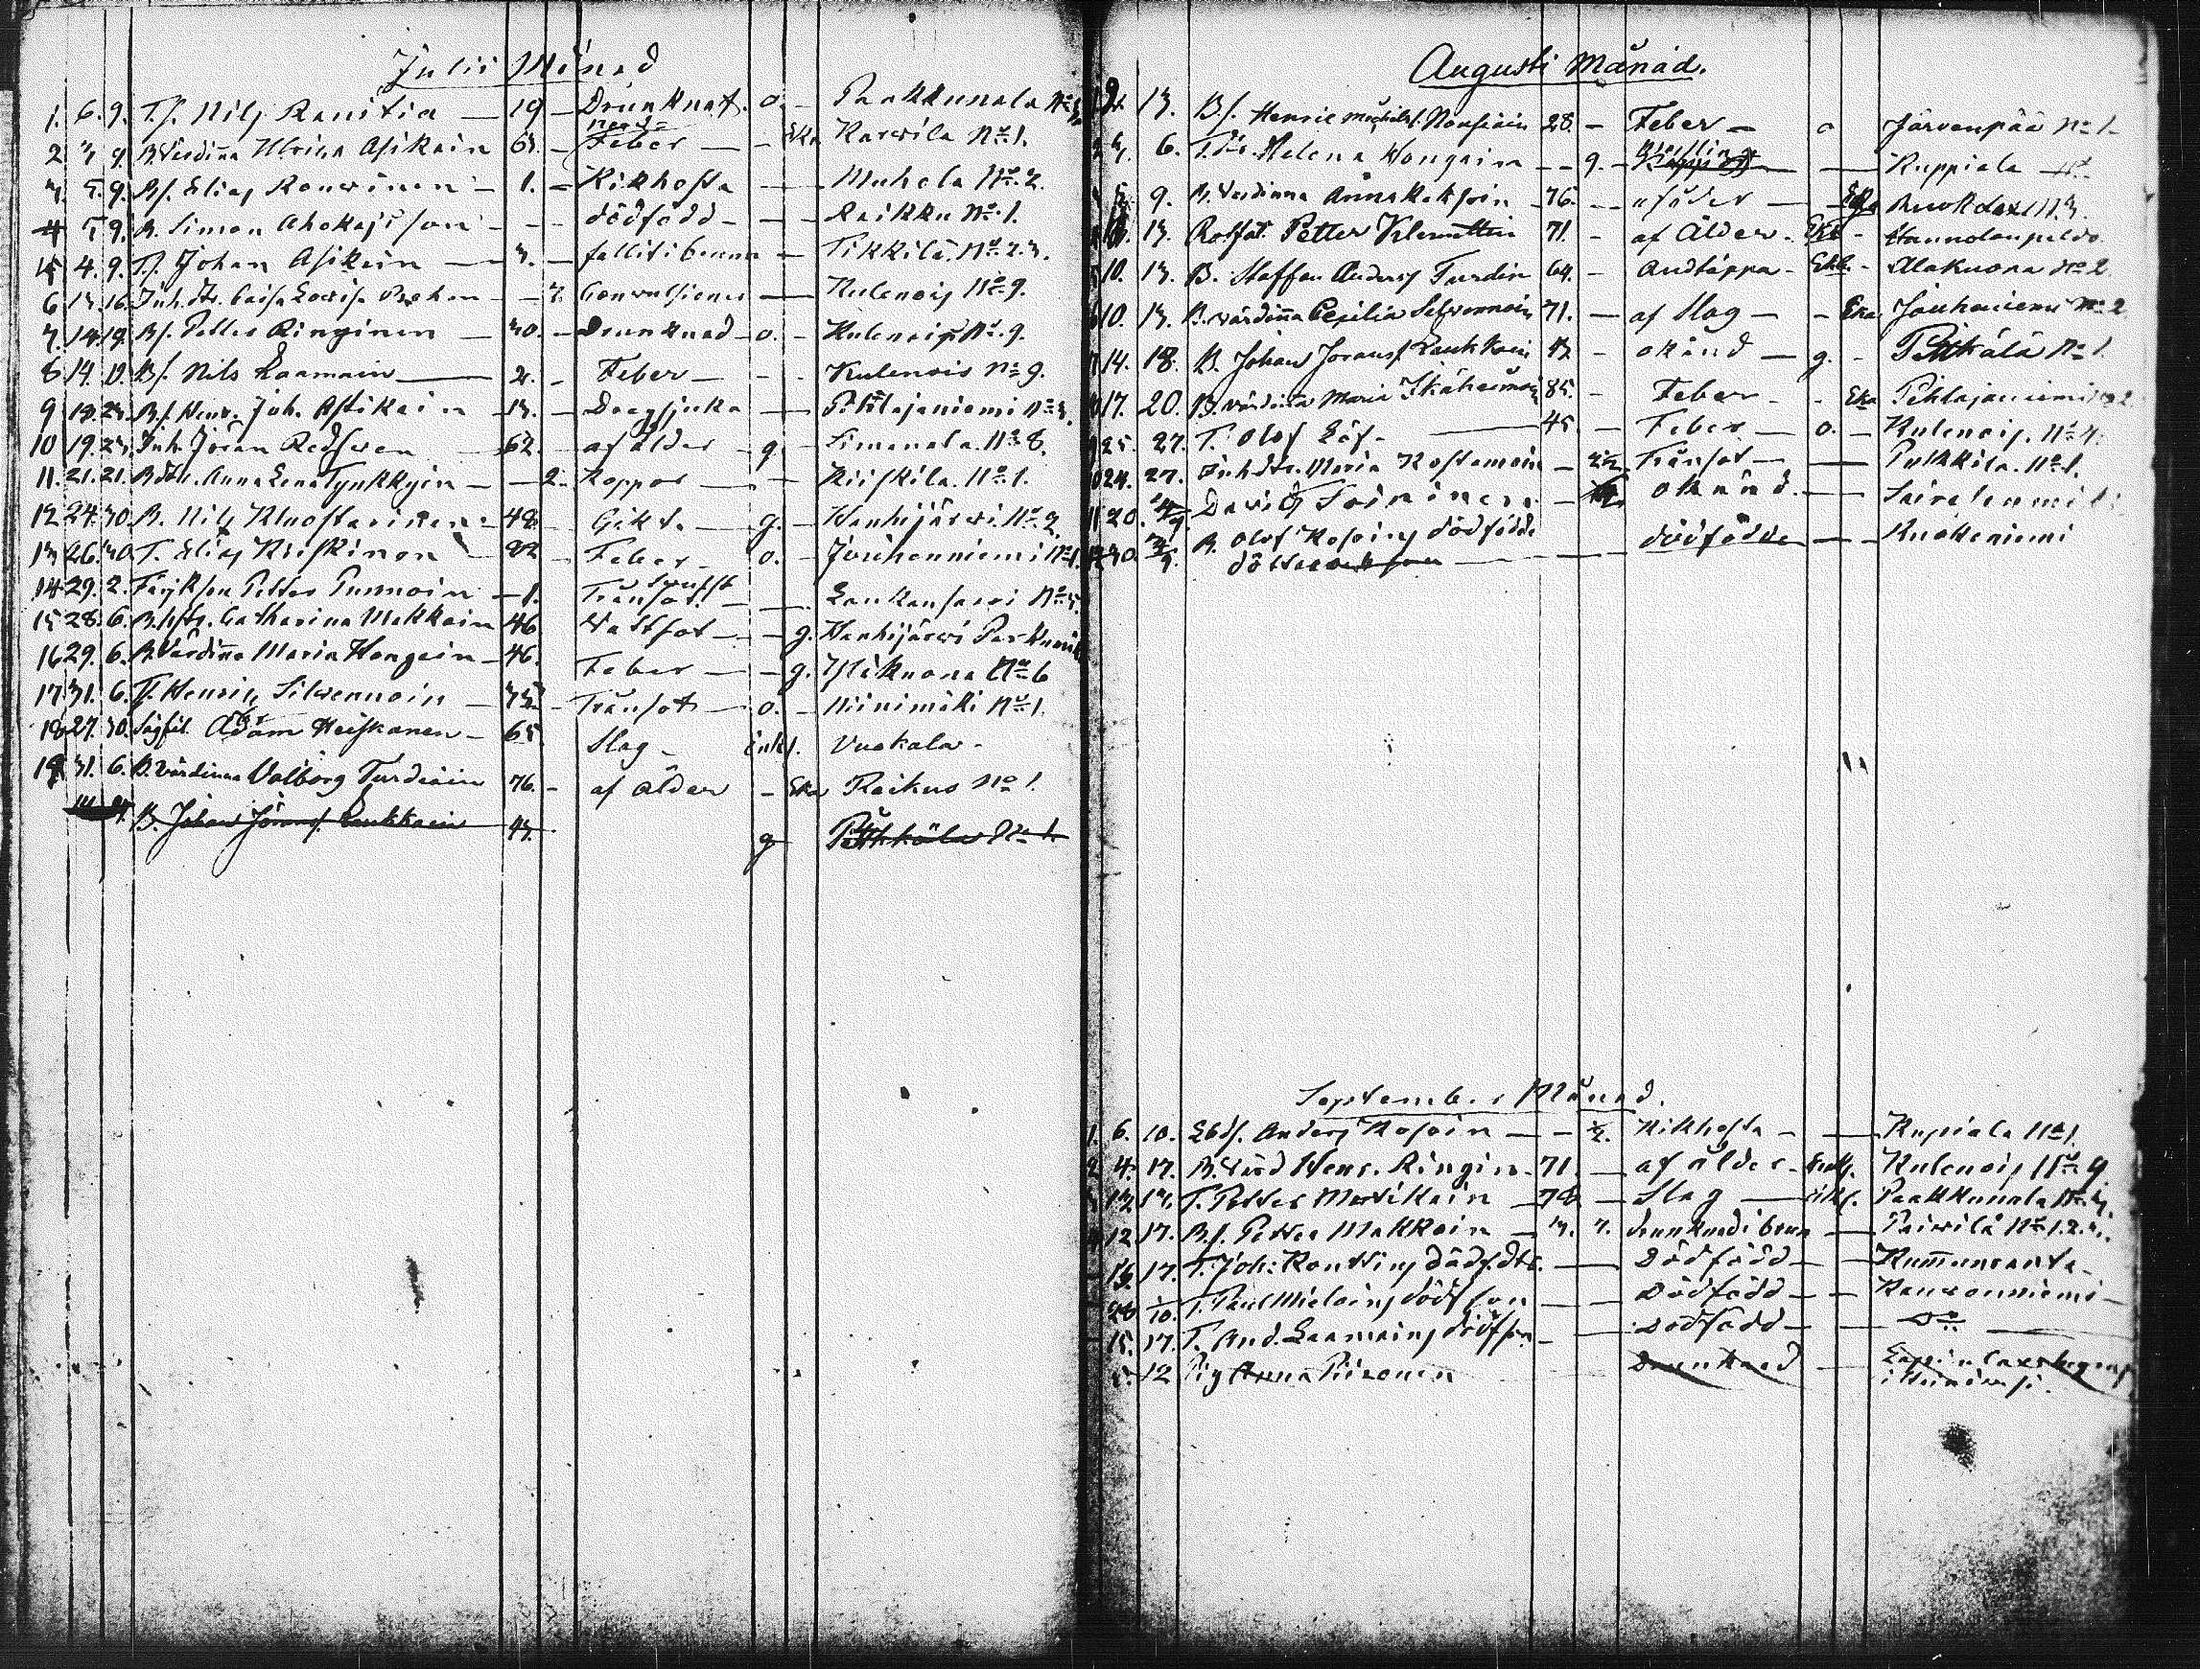 Julii Månad
1. 6. 9. T.f. Nils Ranitia — 19 — Drunknat. o. — Paakkunala No
2 3 9. B. Verdinna Ulrica Asikain 63. — Feber — — Eka Karwila No 1.
3. 5. 9. Bf. Elias Rouvinen — 1. — Kikhosta — Muhola No 2.
4 5 9. B. Simon Ahokais son — — dödfödd — — Raikku No 1.
5 4. 9. T.f. Johan Asikain — 3. — fallit i brunn — Tikkilä No 2.3.
6 13 16. Inh. dtr. Caisa Lovisa — — 7. Convulsioner — Kulenois No 9.
7. 14 19. Bf. Petter Ringinen — 30. — Drunknad — o. — Kulenois No 9.
8 14. 19. Bf. Nils Laamain — 2. — Feber — — Kulenois No 9.
9 19. 23. Bf. Henr. Joh. Asikain — 13. — Dragsjuka — Pihlajaniemi No 3.
10 19. 23. Inh. Jöran Redsven 62. — af ålder g — Simanala. No 8.
11. 21. 21. B. dtr. Anna Lena Tynkkyin — — 2. Koppor — — Kiiskilä. No 1.
12 24. 30. B. Nils Kluostarinen — 48. Gikt — g. — Hanhijärvi No 2
13 26. 30. T. Elias Kriskinen — 22 — Feber — o. — Jouhenniemi No 1.
14 29. 2. Petter Punnoin — 1. Trånsot — — Laukansaari No 5.
15 28. 6. B. hstr. Catharina Makkoin 46 Vattsot — — g. Hanhijärvi
16 29. 6. B. Värdinna Maria Hongain — 46. Feber — — g. Yläkuona No 6
17 31. 6. Tf. Henric Silvennoin — — Trånsot — o. — Niinimäki No 1.
18 27. 30. Adam Heiskanen — 65. Slag — Enkl. Vuokala —
19 31. 6. B. Värdinna Valborg Turdiain 76. — af Ålder — Eka Raikuo No 1.
B. Johan Jöransf. Laukkain 43. g Pitkälä No 1.
Augusti Månad.
13. Bf. Henric Michelsf. Nousiain 28. — Feber — o Järvenpää No 1.
6. T. dr. Helena Hongain — — 9. — — Ruppiala No
9. B. Verdinna Anna Kakoin 76. — — Eka No 3.
13. Rotfat. Petter Klemettin 71. — af Ålder. Ekl —
10. 13. B. Staffan Andersf Turdin 64. — Andtäppa — Ekl. — Alakuona No 2
10. 13. B. Värdinna Cecilia Silvennoin 71. — af Slag — — Eka Jouhenniemi No 2
14. 18. B. Johan Joransf Laukkain 43 — okänd — g. — Pitkälä No 1.
17. 20. B. Värdinna Maria Ikäheimoin 85. — Feber — — Eka Pihlajaniemi No 2
25. 27. T. Olof Löf. — 45. — Feber — o. — Kulenois. No 4.
24. 27. Inh. dtr. Maria Kostamoin — Trånsot — — Pulkkila. No 1.
20. David Toivinen — okänd. — Sairalanmäki
30. B. Olof Kosoins dödfödda dödfödde — — Kuokeniemi
dotter och son —
September Månad.
1. 6. 10. Ebdf. Anders Kosoin — — ½. Kikhosta — — Rupiala No 1.
2 4. 17. B. Värd Henr. Ringin — 71. — af ålder — Enkl. Kulenois No 9
3 13 17. T. Petter Matikain — 78 — Slag — Enkl. Paakkunala No 3.
4 12 17. Bf. Petter Makkoin — 3. 7. Drunknad i brun — Paivilä No 1.2.3.
16. 17. T. Joh: Konttins död f. dtr. — — Dödfödd — — Kummunranta —
28 T. Paul Mieloins död son — — Dödfödd — — Kauvonniemi —
15. 17. T. And. Laamains död son — — Dödfödd — — Do
5. 12 Pig Anna Piironen Drunknad —